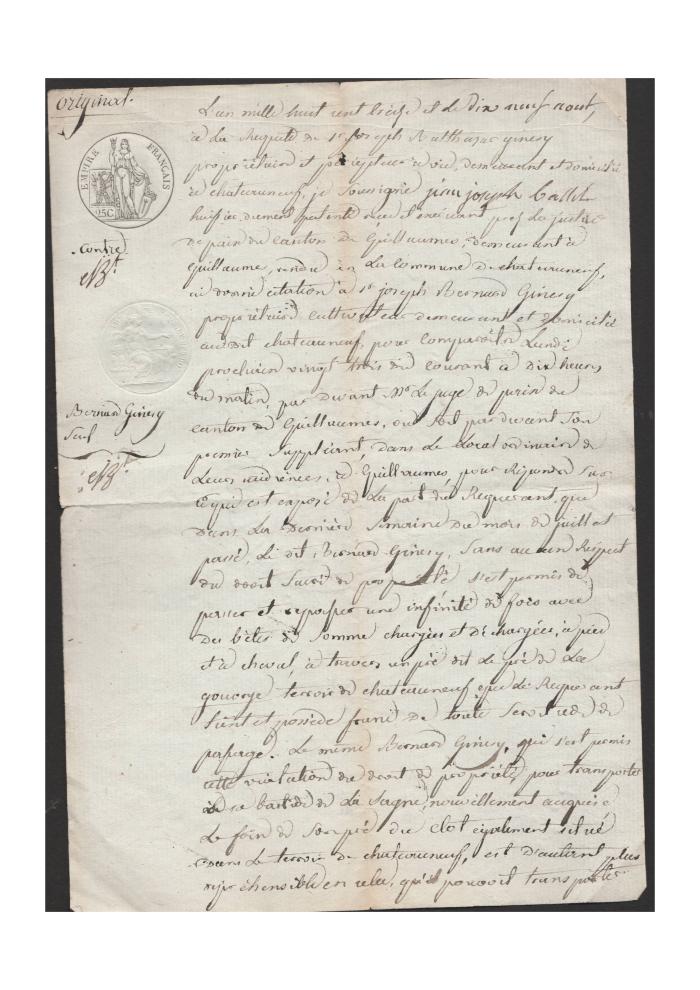 original.
L'an mille huit cent treize et le dix neuf aout,
à la Requete de Sr joseph Balthazar ginesy
EMPIRE FRANÇAIS
25C
propriétaire et percepteur à vie, demeurant et domicilié
à chateauneuf, je soussigné jean joseph
huissier dument patenté reçu et exerçant près la justice
contre
de paix du canton de Guillaumes, demeurant à
guillaume, rendu en la commune de chateauneuf,
ai donné citation à Sr joseph Bernard Ginesy
propriétaire cultivateur demeurant et domicilié
audit chateauneuf, pour comparaitre Lundi
prochain vingt trois du courant à dix heures
du matin, par devant Mr Le juge de paix du
Bernard Ginesy
canton de Guillaumes, ou soit par devant son
Seuf
premier suppléant, dans le local ordinaire de
Leurs audiences, à Guillaumes, pour Répondre sur
ce qui est exposé de la part du Requerant, que
dans la derniere semaine du mois de juillet
passé, le dit Bernard Ginesy, sans aucun Respect
du droit sacré de propriété s'est permis de
passer et repasser une infinité de fois avec
des bêtes de somme chargées et déchargées, à pied
et à cheval, à travers un pré dit le pré de la
gourrge terroir de chateauneuf que le Requerant
tient et possède franc de toute servitude de
passage. Le meme Bernard Ginesy, qui s'est permis
cette violation du droit de propriété, pour transporter
à sa bastide de La Sagne, nouvellement acquise
Le foin de son pré du clot également situé
dans le terroir de chateauneuf, est d'autant plus
repréhensible en cela, qu'il pouvoit transporter